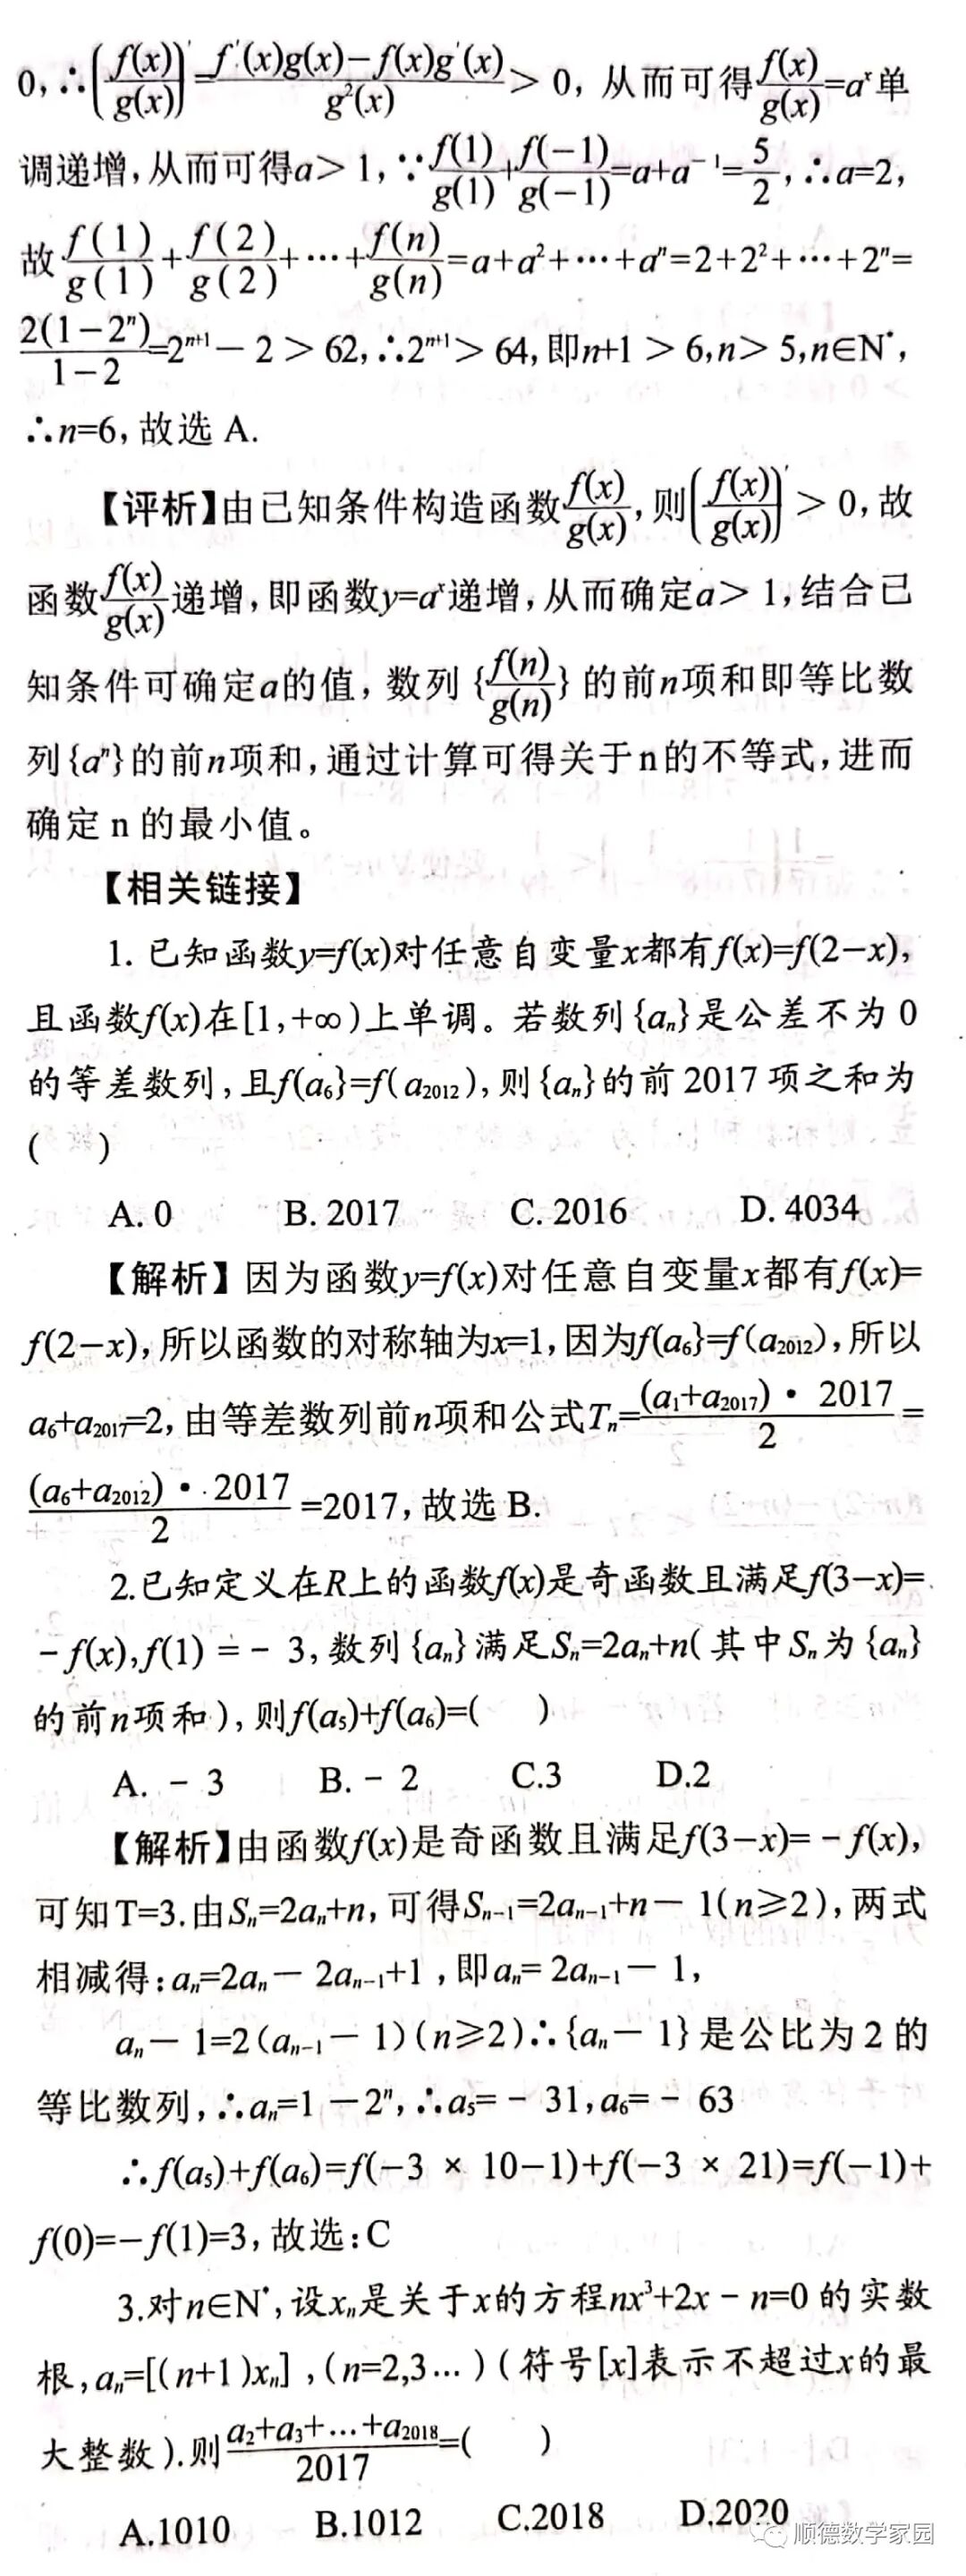 0,∴(f(x)/g(x))′=(f′(x)g(x)−f(x)g′(x))/g²(x)＞0, 从而可得f(x)/g(x)=aˣ单
调递增,从而可得a＞1,∵f(1)/g(1)+f(−1)/g(−1)=a+a⁻¹=5/2,∴a=2,
故f(1)/g(1)+f(2)/g(2)+…+f(n)/g(n)=a+a²+…+aⁿ=2+2²+…+2ⁿ=
2(1−2ⁿ)/(1−2)=2ⁿ⁺¹−2＞62,∴2ⁿ⁺¹＞64,即n+1＞6,n＞5,n∈N*,
∴n=6,故选 A.
【评析】由已知条件构造函数f(x)/g(x),则(f(x)/g(x))′＞0,故
函数f(x)/g(x)递增,即函数y=aˣ递增,从而确定a＞1,结合已
知条件可确定a的值,数列{f(n)/g(n)}的前n项和即等比数
列{aⁿ}的前n项和,通过计算可得关于n的不等式,进而
确定 n 的最小值。
【相关链接】
1. 已知函数y=f(x)对任意自变量x都有f(x)=f(2−x),
且函数f(x)在[1,+∞)上单调。若数列{aₙ}是公差不为 0
的等差数列,且f(a₆}=f(a₂₀₁₂),则{aₙ}的前 2017 项之和为
( )
A. 0 B. 2017 C. 2016 D. 4034
【解析】因为函数y=f(x)对任意自变量x都有f(x)=
f(2−x),所以函数的对称轴为x=1,因为f(a₆}=f(a₂₀₁₂),所以
a₆+a₂₀₁₇=2,由等差数列前n项和公式Tₙ=(a₁+a₂₀₁₇)·2017/2=
(a₆+a₂₀₁₂)·2017/2=2017,故选 B.
2.已知定义在R上的函数f(x)是奇函数且满足f(3−x)=
−f(x),f(1)=−3,数列{aₙ}满足Sₙ=2aₙ+n(其中Sₙ为{aₙ}
的前n项和),则f(a₅)+f(a₆)=( )
A. −3 B. −2 C.3 D.2
【解析】由函数f(x)是奇函数且满足f(3−x)=−f(x),
可知T=3.由Sₙ=2aₙ+n,可得Sₙ₋₁=2aₙ₋₁+n−1(n≥2),两式
相减得:aₙ=2aₙ−2aₙ₋₁+1,即aₙ=2aₙ₋₁−1,
aₙ−1=2(aₙ₋₁−1)(n≥2)∴{aₙ−1}是公比为 2 的
等比数列,∴aₙ=1−2ⁿ,∴a₅=−31,a₆=−63
∴f(a₅)+f(a₆)=f(−3×10−1)+f(−3×21)=f(−1)+
f(0)=−f(1)=3,故选:C
3.对n∈N*,设xₙ是关于x的方程nx³+2x−n=0的实数
根,aₙ=[(n+1)xₙ],(n=2,3…)(符号[x]表示不超过x的最
大整数).则(a₂+a₃+…+a₂₀₁₈)/2017=( )
A.1010 B.1012 C.2018 D.2020
顺德数学家园